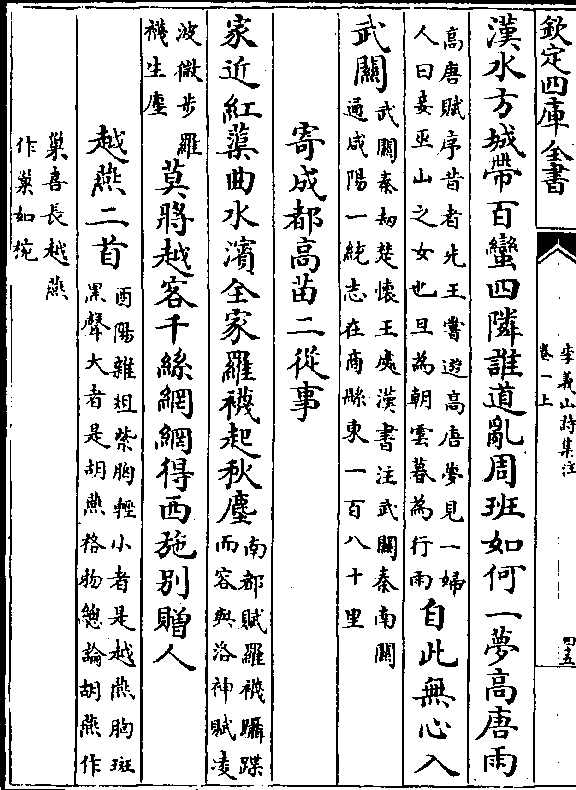 欽定四庫全書
李義山詩集注
卷一上
四五
漢水方城帶百蠻四隣誰道亂周班如何一夢高唐雨
高唐賦序昔者先王嘗遊高唐夢見一婦
人曰妾巫山之女也旦為朝雲暮為行雨
自此無心入
武關
武關秦劫楚懷王處漢書注武關秦南關
通咸陽一統志在商縣東一百八十里
寄成都高苗二從事
家近紅蕖曲水濱全家羅襪起秋塵
南都賦羅襪躡蹀
而容與洛神賦凌
波微步羅
襪生塵
莫將越客千絲網網得西施别贈人
越燕二首
酉陽雜俎紫胸輕小者是越燕胸斑
黑聲大者是胡燕格物總論胡燕作
巢喜長越燕
作巢如椀